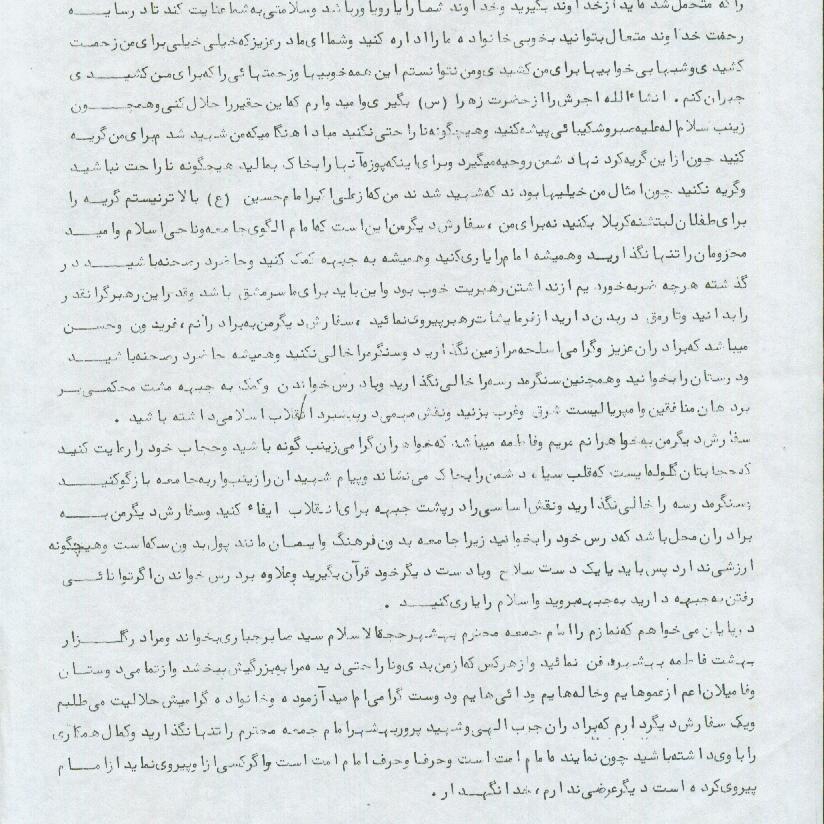 را که متحمل شده‌اید از خداوند بگیرید و خداوند شما را یار و یاور باشد و سلامتی به شما عنایت کند تا در سایه
رحمت خداوند متعال بتوانید بخوبی خانواده ما را اداره کنید و شما ای مادر عزیز که خیلی خیلی برای من زحمت
کشیدی و شبها بی خوابیها برای من کشیدی و من نتوانستم این همه خوبیها و زحمتهائی را که برای من کشیدی
جبران کنم . انشاءالله اجرش را از حضرت زهرا (س) بگیری و امیدوارم که این حقیر را حلال کنی و همچون
زینب سلام اله علیه صبر و شکیبائی پیشه کنید و هیچگونه ناراحتی نکنید مبادا هنگامیکه من شهید شدم برای من گریه
کنید چون از این گریه کردنها دشمن روحیه میگیرد و برای اینکه پوزه آنها را بخاک بمالید هیچگونه ناراحت نباشید
و گریه نکنید چون امثال من خیلیها بودند که شهید شدند من که از علی اکبر امام حسین (ع) بالاتر نیستم گریه را
برای طفلان لب تشنه کربلا بکنید نه برای من ، سفارش دیگر من این است که امام الگوی جامعه و ناحی اسلام و امید
محرومان را تنها نگذارید و همیشه امام را یاری کنید و همیشه به جبهه کمک کنید و حاضر در صحنه باشید در
گذشته هرچه ضربه خوردیم از نداشتن رهبریت خوب بود و این باید برای ما سرمشق باشد و قدر این رهبر گرانقدر
را بدانید و تا رمق در بدن دارید از فرمایشات رهبر پیروی نمائید ، سفارش دیگر من به برادرانم ، فریدون و حسن
میباشد که برادران عزیز و گرامی اسلحه مرا زمین نگذارید و سنگر مرا خالی نکنید و همیشه حاضر در صحنه باشید
و درستان را بخوانید و همچنین سنگر مدرسه را خالی نگذارید و با درس خواندن و کمک به جبهه مشت محکمی بر
بر دهان منافقین و امپریالیست شرق و غرب بزنید و نقش مهمی در پیشبرد انقلاب اسلامی داشته باشید .
سفارش دیگر من به خواهرانم مریم و فاطمه میباشد که خواهران گرامی زینب گونه باشید و حجاب خود را رعایت کنید
که حجابتان گلوله ایست که قلب سیاه دشمن را بخاک می نشاند و پیام شهیدان را زینب وار به جامعه بازگو کنید
سنگر مدرسه را خالی نگذارید و نقش اساسی را در پشت جبهه برای انقلاب ایفاء کنید و سفارش دیگر من به
برادران محل باشد که درس خود را بخوانید زیرا جامعه بدون فرهنگ و ایمان مانند پول بدون سکه است و هیچگونه
ارزشی ندارد پس باید با یک دست سلاح و با دست دیگر خود قرآن بگیرید و علاوه بر درس خواندن اگر توانائی
رفتن به جبهه دارید به جبهه بروید و اسلام را یاری کنید .
در پایان می خواهم که نمازم را امام جمعه محترم بهشهر حجه الاسلام سید صابر جباری بخواند و مرا در گلزار
بهشت فاطمه بهشهر دفن نمائید و از هر کس که از من بدی و ناراحتی دیده مرا به بزرگیش ببخشد و از تمامی دوستان
و فامیلان اعم از عموهایم و خاله هایم و دائی هایم و دوست گرامی ام امید آزموده و خانواده گرامیش حلالیت می طلبم
و یک سفارش دیگر دارم که برادران حزب الهی و شهید پرور بهشهر امام جمعه محترم را تنها نگذارید و کمال همکاری
را با وی داشته باشید چون نماینده امام امت است و حرفها و حرف امام امت است و اگر کسی از او پیروی نماید از امام
پیروی کرده است دیگر عرضی ندارم ، خدانگهدار .